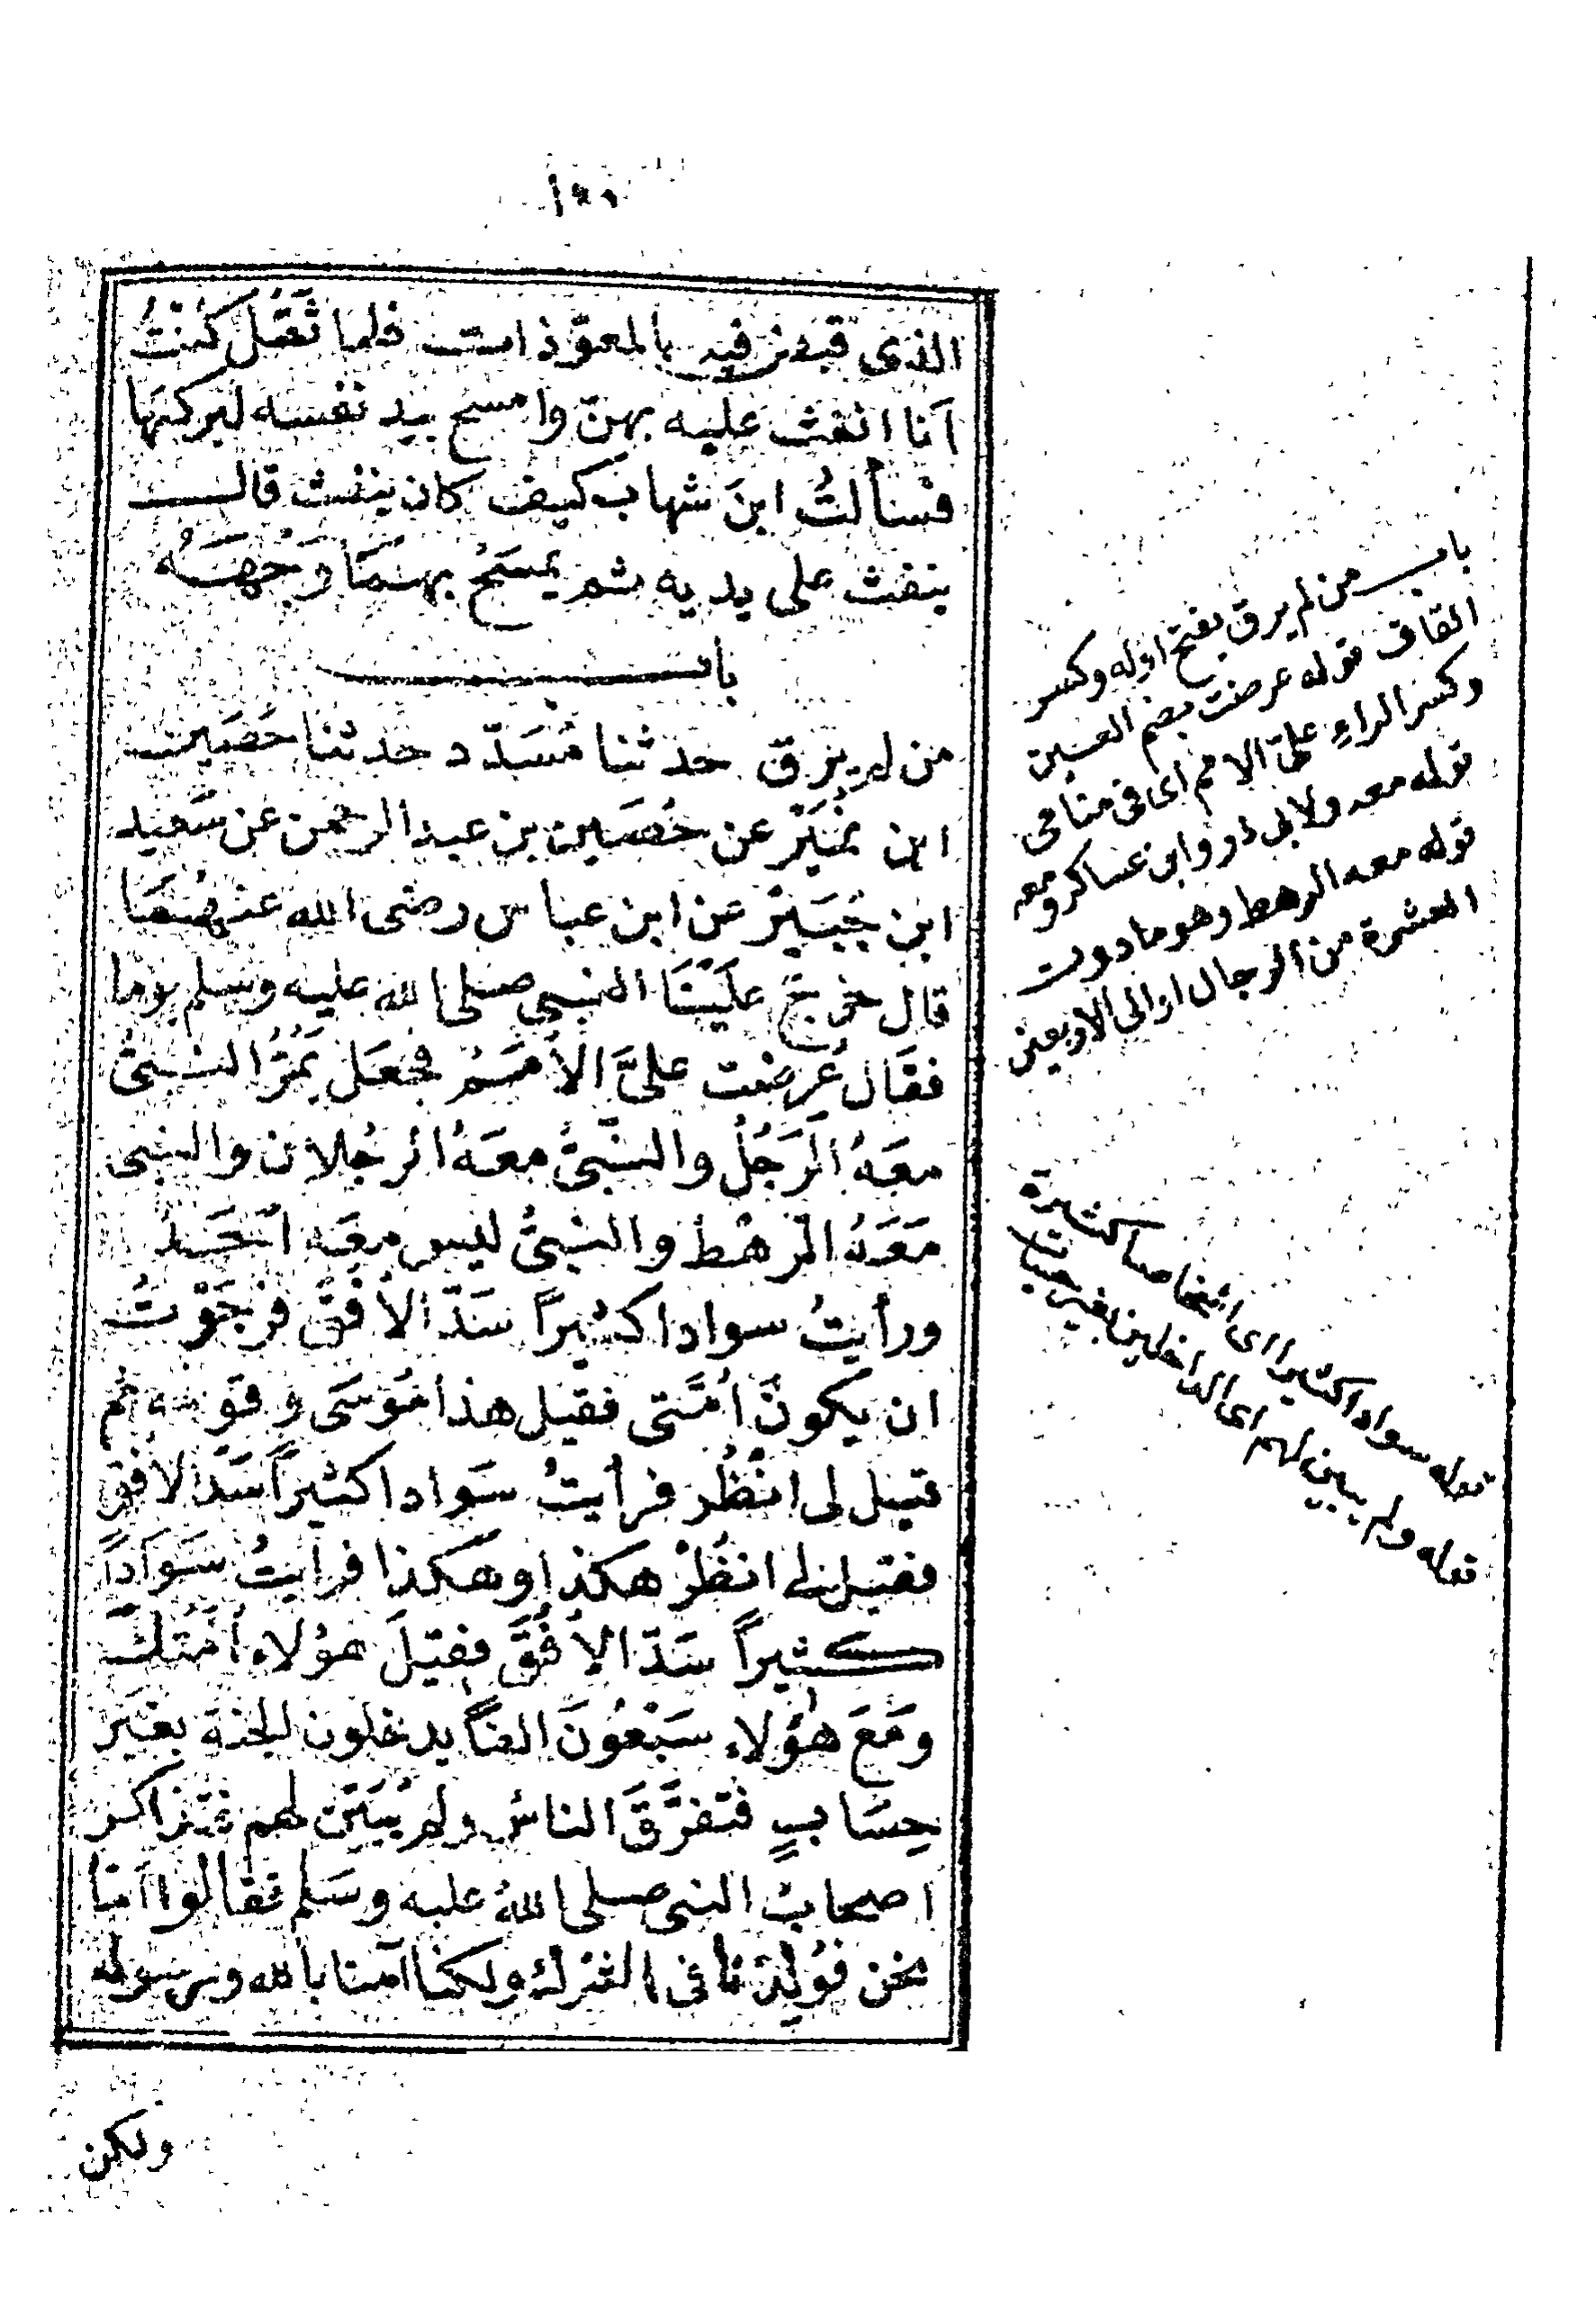 الذى قبض فيه بالمعوّذات فلما ثَقُل كُنْتُ
اَنا انفث عليه بهنّ وامسح بيد نفسه لبركتها
فسألتُ ابنَ شهاب كيف كان ينفث قال
ينفث على يديه ثم يمسَحُ بهمَا وَجْهَهُ
باب
من لم يرق حدثنا مُسَدّد حدثنا حُصَين
ابن نُمَيْر عن حُصَين بن عبد الرحمن عن سَعيد
ابن جُبَيْر عن ابن عباس رضى الله عنهُمَا
قال خرج عَلَيْنَا النبى صلى الله عليه وسلم يوما
فقَال عُرِضت علىَّ الأُمَمُ فجعَل يَمُرُّ النبىُّ
معَهُ الرَجُلُ والنبىُّ معَهُ الرجُلان والنبى
مَعَهُ الرهْط والنبىُّ ليس معَه اَحَد
ورأيتُ سوادا كثيراً سَدّ الأفقَ فرجَوْتُ
ان يكونَ اُمَّتى فقيل هذا مُوسَى وقومه ثم
قيل لى انْظُر فرأيتُ سَوادا كثيراً سَدّ الافق
فقيل لى انظُرْ هكذا وهكذا فرأيتُ سَوَاداً
كثيراً سَدّ الأفُقَ فقيلَ هؤلاء اُمّتكَ
وَمَعَ هٰؤلاء سَبْعُونَ الفاً يدخلون الجنة بغيَر
حِسَابٍ فتفرَّقَ الناسُ ولم يُبَيَّن لهم فتذاكر
اصحابُ النبى صلى الله عليه وسَلم فقالوا اَمّا
نحن فوُلِدْنا فى الشرك ولكنا آمنا بالله ورسوله
ولكن
باب من لم يرق بفتح اوله وكسر
القاف قوله عرضت بضم العين
وكسر الراء علىّ الامم اى فى منامى
قوله معه ولابى ذر وابن عساكر ومعه
قوله معه الرهط وهو ما دون
العشرة من الرجال او الى الاربعين
قوله سوادا كثيرا اى اشخاصا كثيرة
قوله ولم يبين لهم اى الداخلين بغير حساب